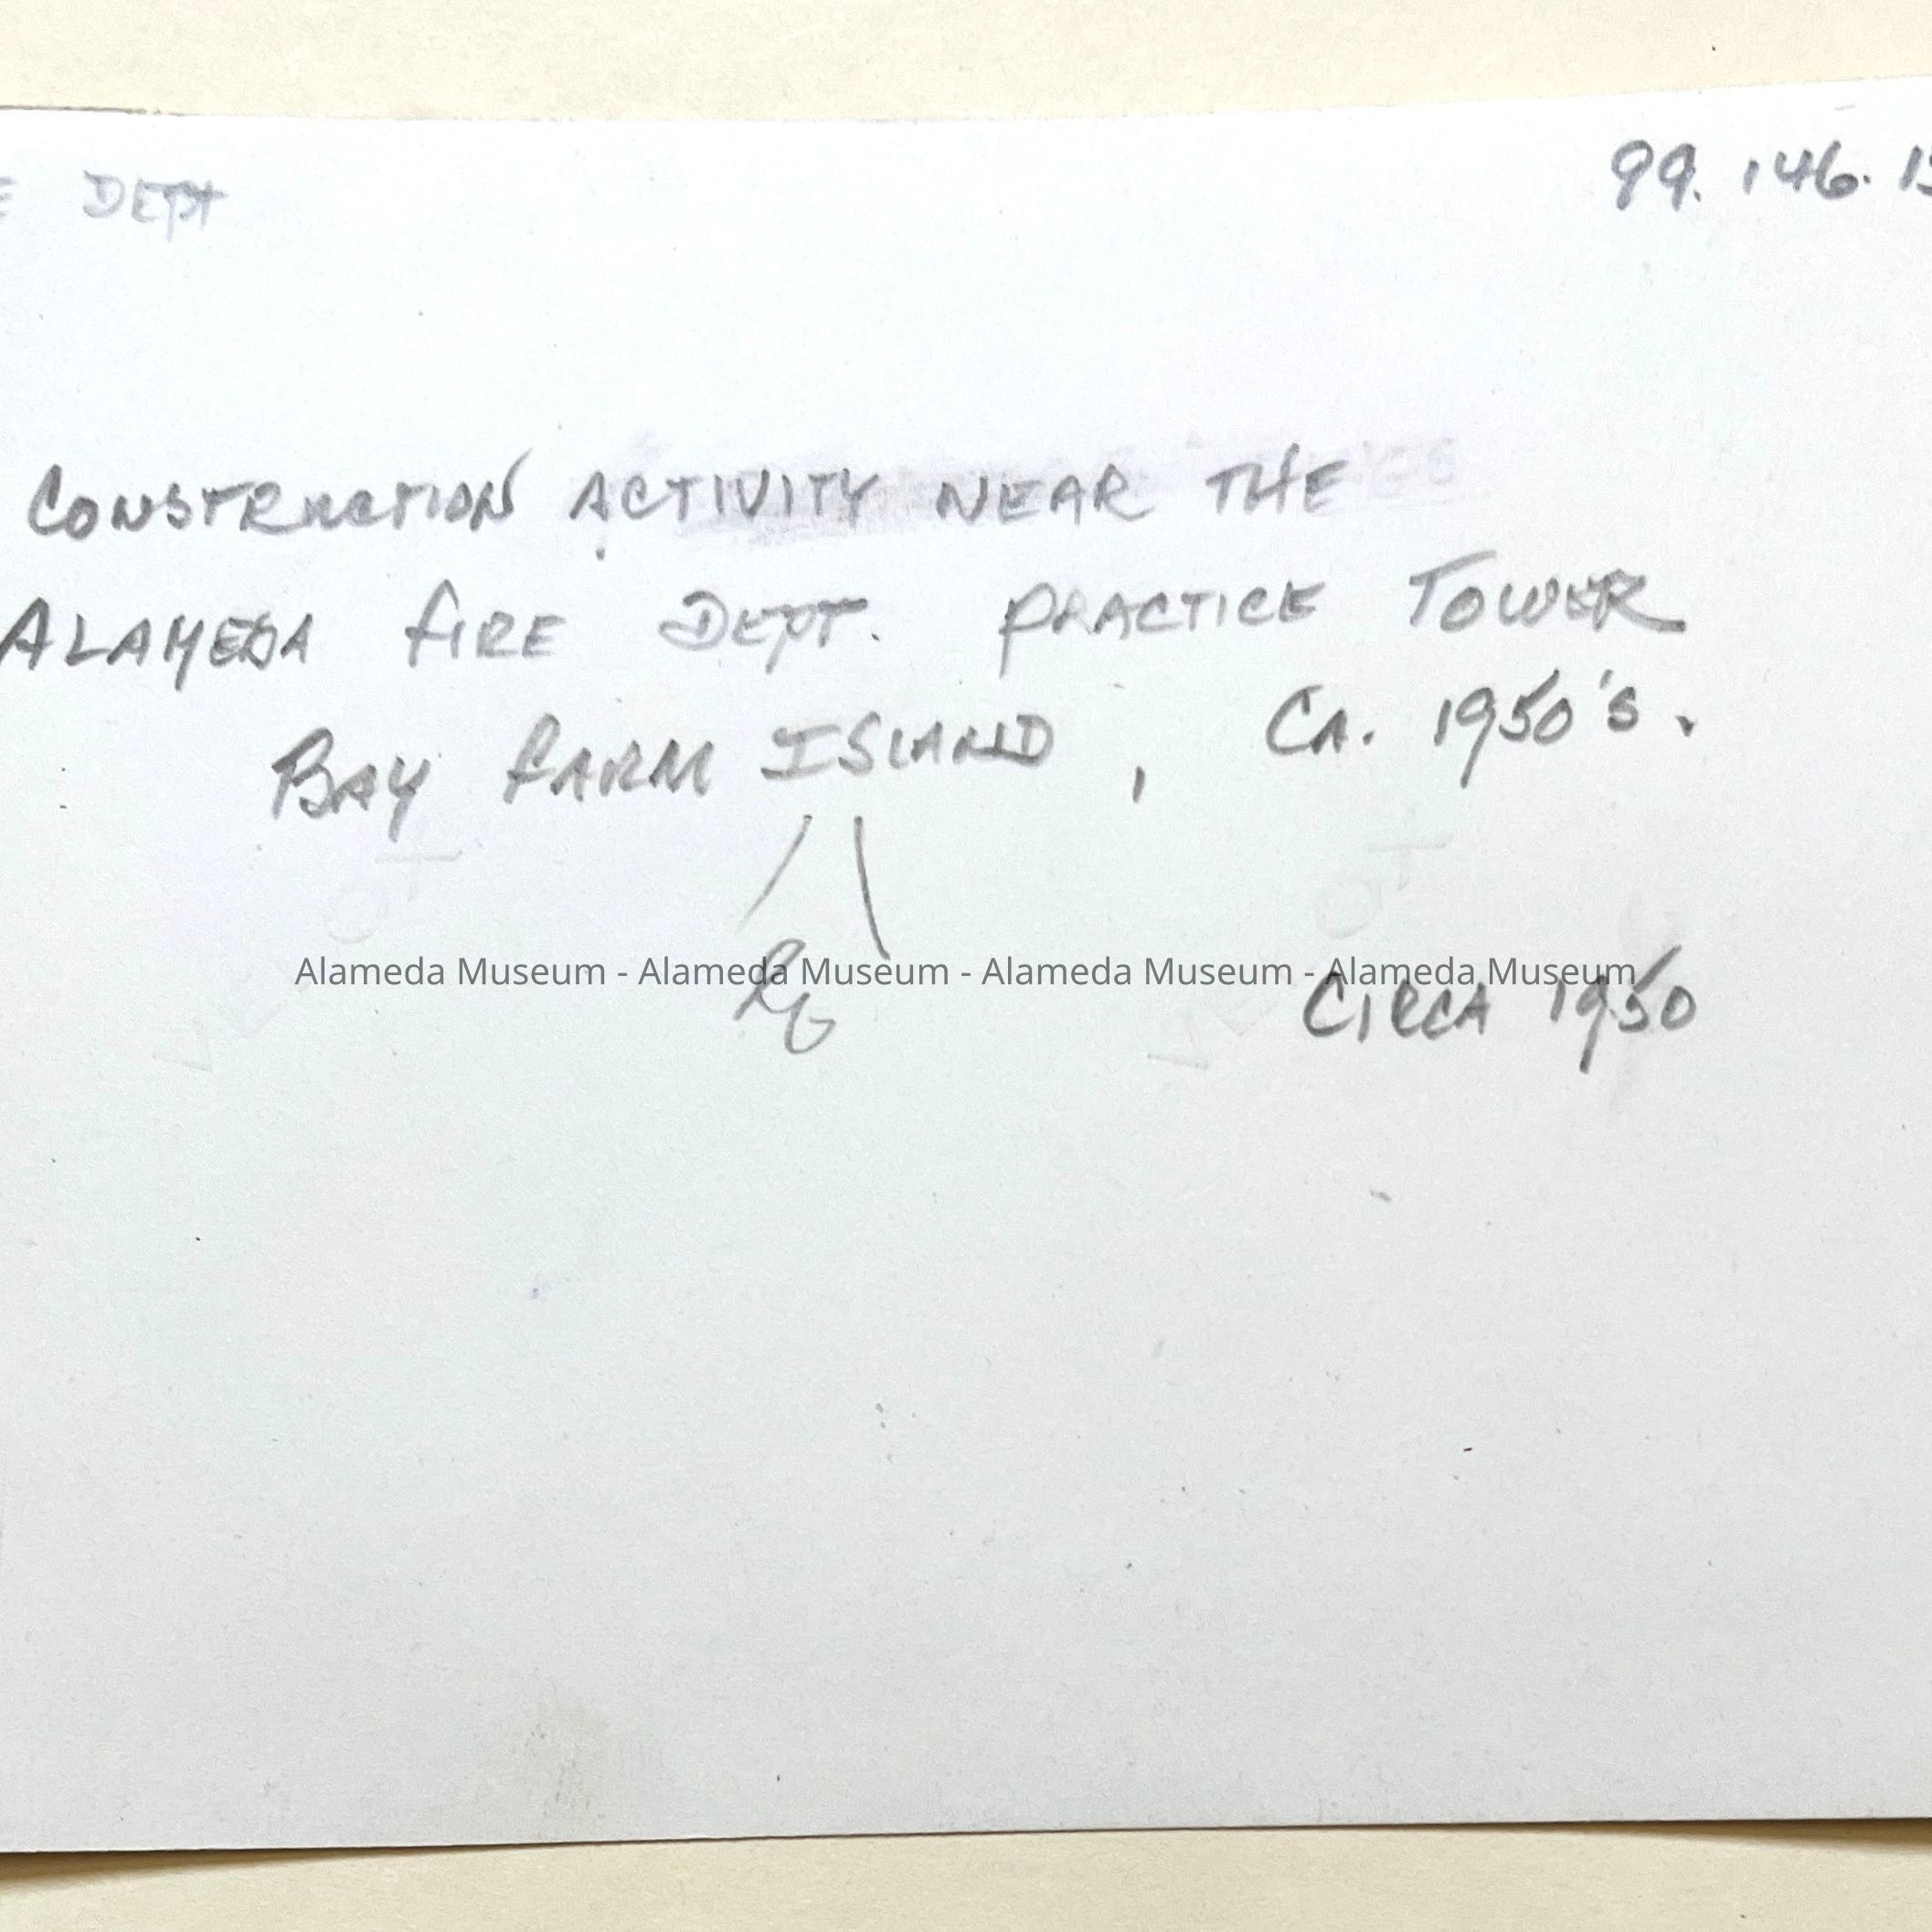 DEPT 99.146.
CONSTRUCTION ACTIVITY NEAR THE
ALAMEDA FIRE DEPT. PRACTICE TOWER
BAY FARM ISLAND, CA. 1950'S.
Alameda Museum - Alameda Museum - Alameda Museum - Alameda Museum
CIRCA 1950